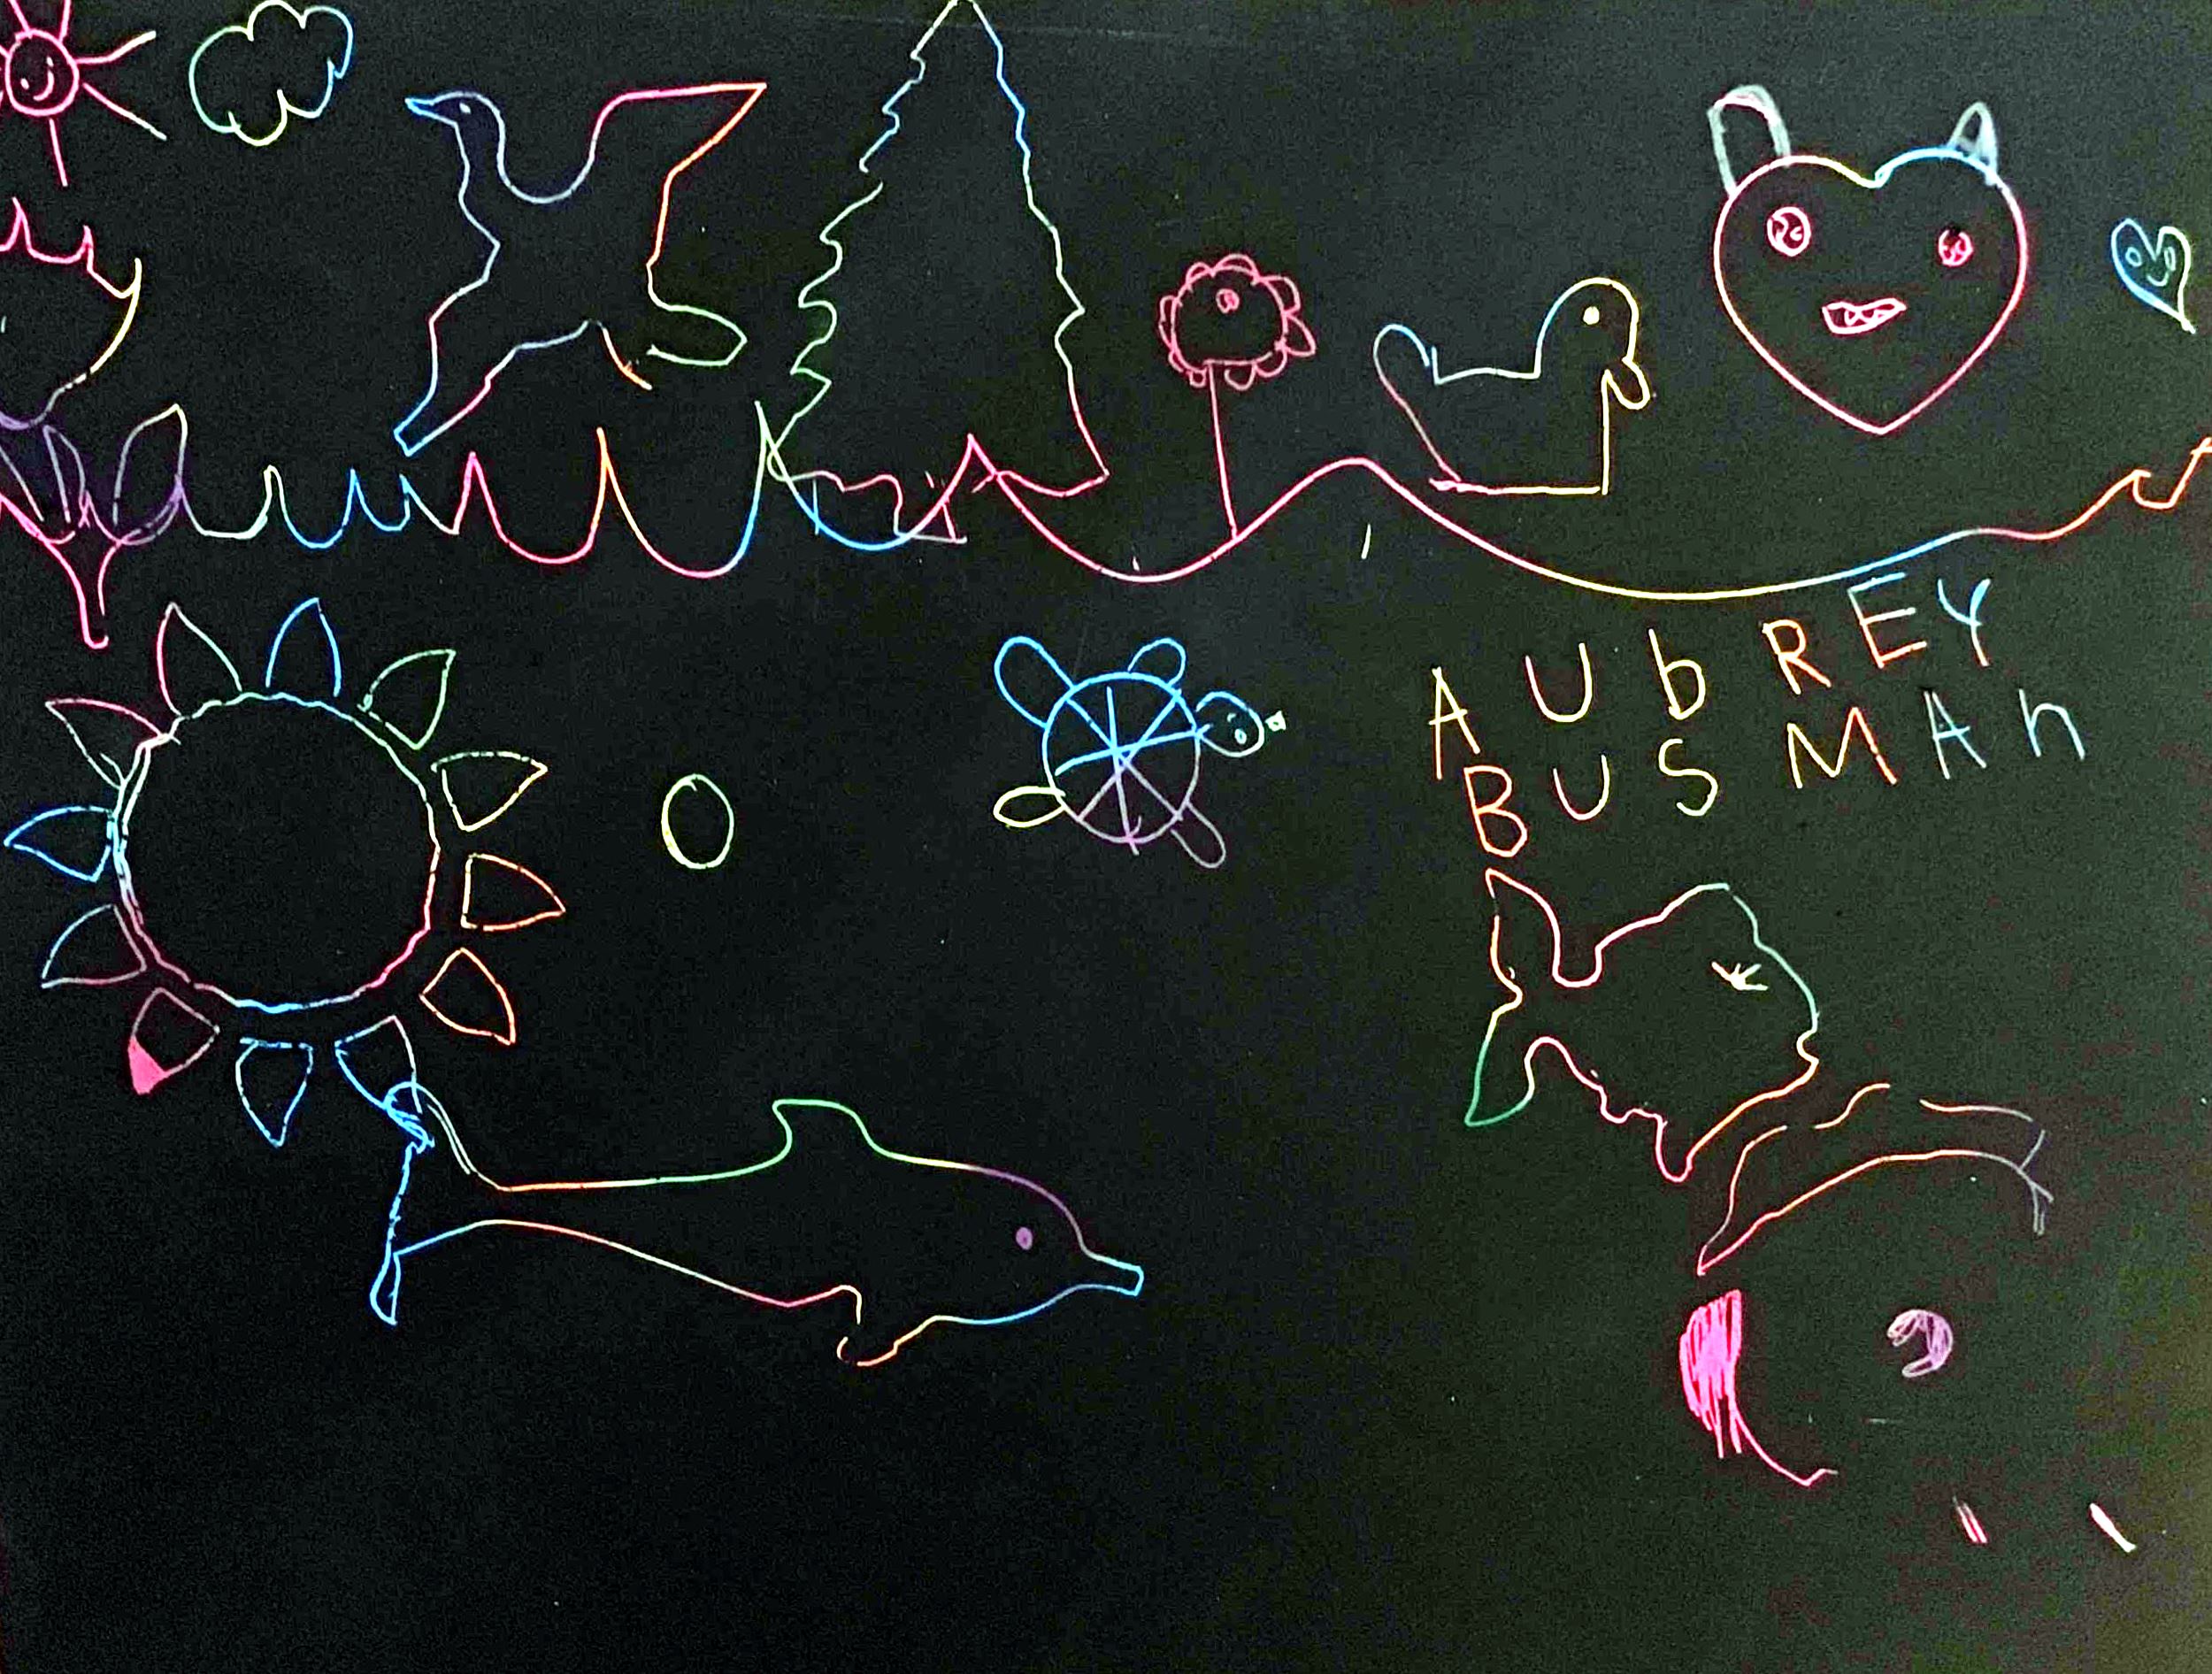 AUbREY
BUSMAh